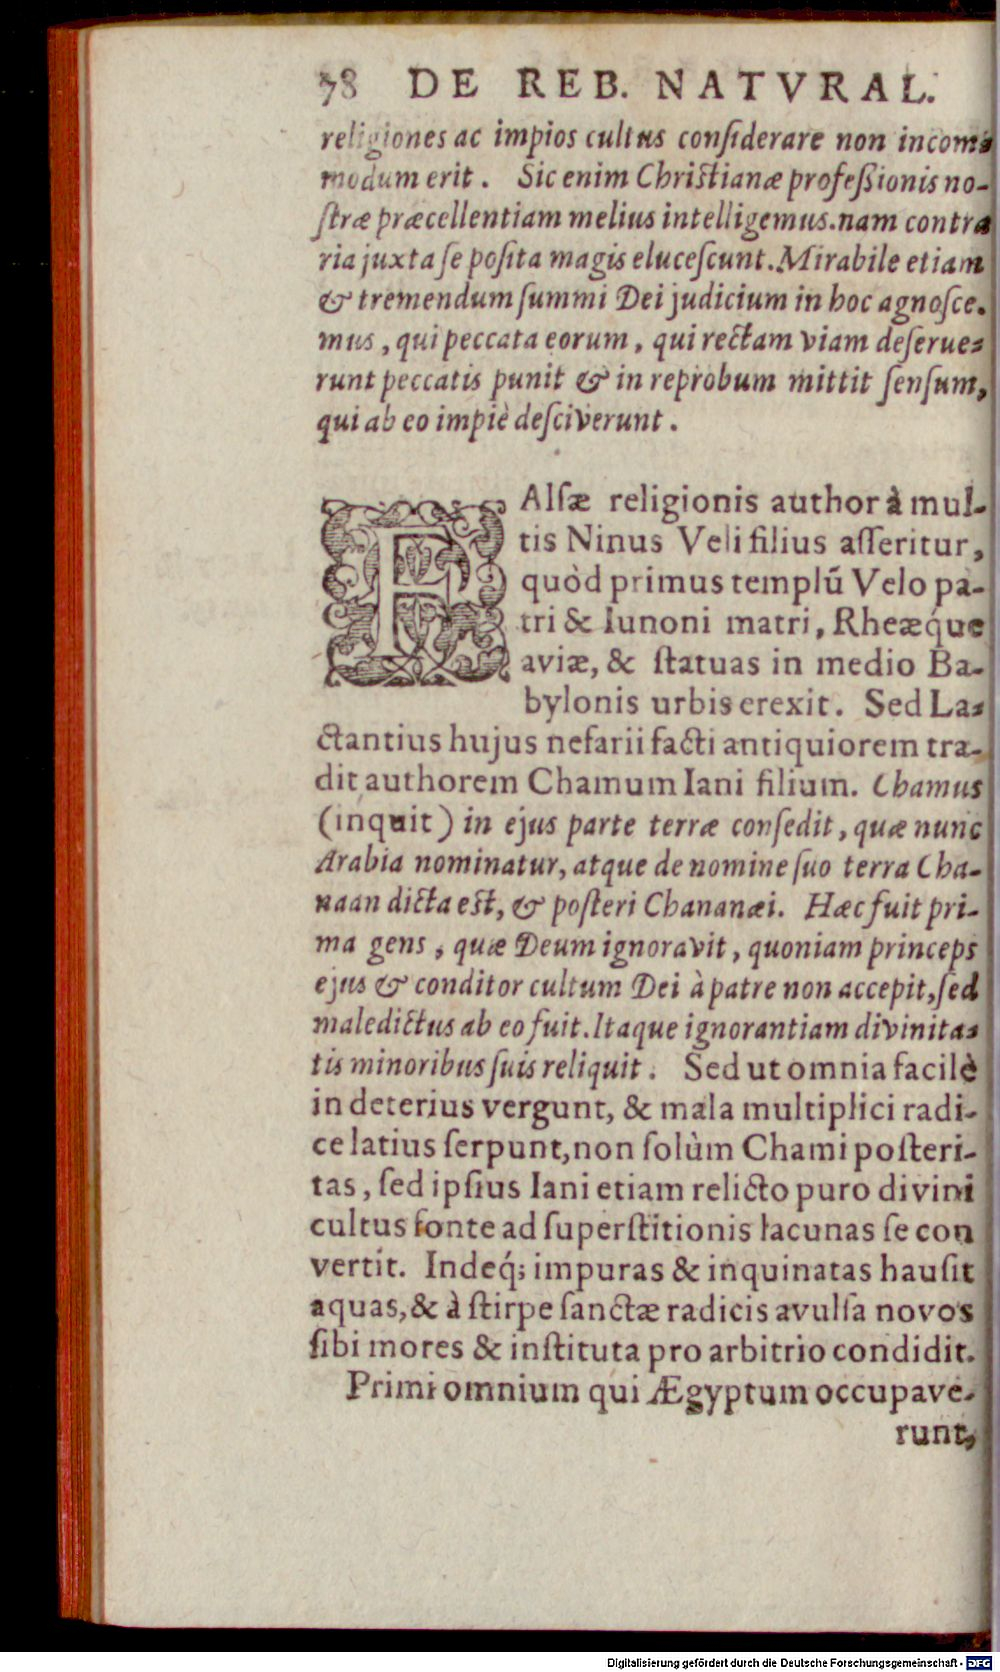 78 DE REB. NATVRAL.
religiones ac impios cultus conſiderare non incom⸗
modum erit. Sic enim Chriſtianæ profeßionis no-
ſtræ præcellentiam melius intelligemus. nam contra
ria juxta ſe poſita magis eluceſcunt. Mirabile etiam
& tremendum ſummi Dei judicium in hoc agnoſce.
mus, qui peccata eorum, qui rectam viam deſerue⸗
runt peccatis punit & in reprobum mittit ſenſum,
qui ab eo impiè deſciverunt.
FAlſæ religionis author à mul-
tis Ninus Veli filius aſſeritur,
quòd primus templũ Velo pa-
tri & Iunoni matri, Rheæq́ue
aviæ, & ſtatuas in medio Ba-
bylonis urbis erexit. Sed La⸗
ctantius hujus nefarii facti antiquiorem tra-
dit authorem Chamum Iani filium. Chamus
(inquit) in ejus parte terræ conſedit, quæ nunc
Arabia nominatur, atque de nomine ſuo terra Cha-
naan dicta eſt, & poſteri Chananæi. Hæc fuit pri-
ma gens, quæ Deum ignoravit, quoniam princeps
ejus & conditor cultum Dei à patre non accepit, ſed
maledictus ab eo fuit. Itaque ignorantiam divinita⸗
tis minoribus ſuis reliquit. Sed ut omnia facilè
in deterius vergunt, & mala multiplici radi-
ce latius ſerpunt, non ſolùm Chami poſteri-
tas, ſed ipſius Iani etiam relicto puro divini
cultus fonte ad ſuperſtitionis lacunas ſe con
vertit. Indeq́; impuras & inquinatas hauſit
aquas, & à ſtirpe ſanctæ radicis avulſa novos
ſibi mores & inſtituta pro arbitrio condidit.
Primi omnium qui Ægyptum occupave-
runt,
Digitalisierung gefördert durch die Deutsche Forschungsgemeinschaft - DFG